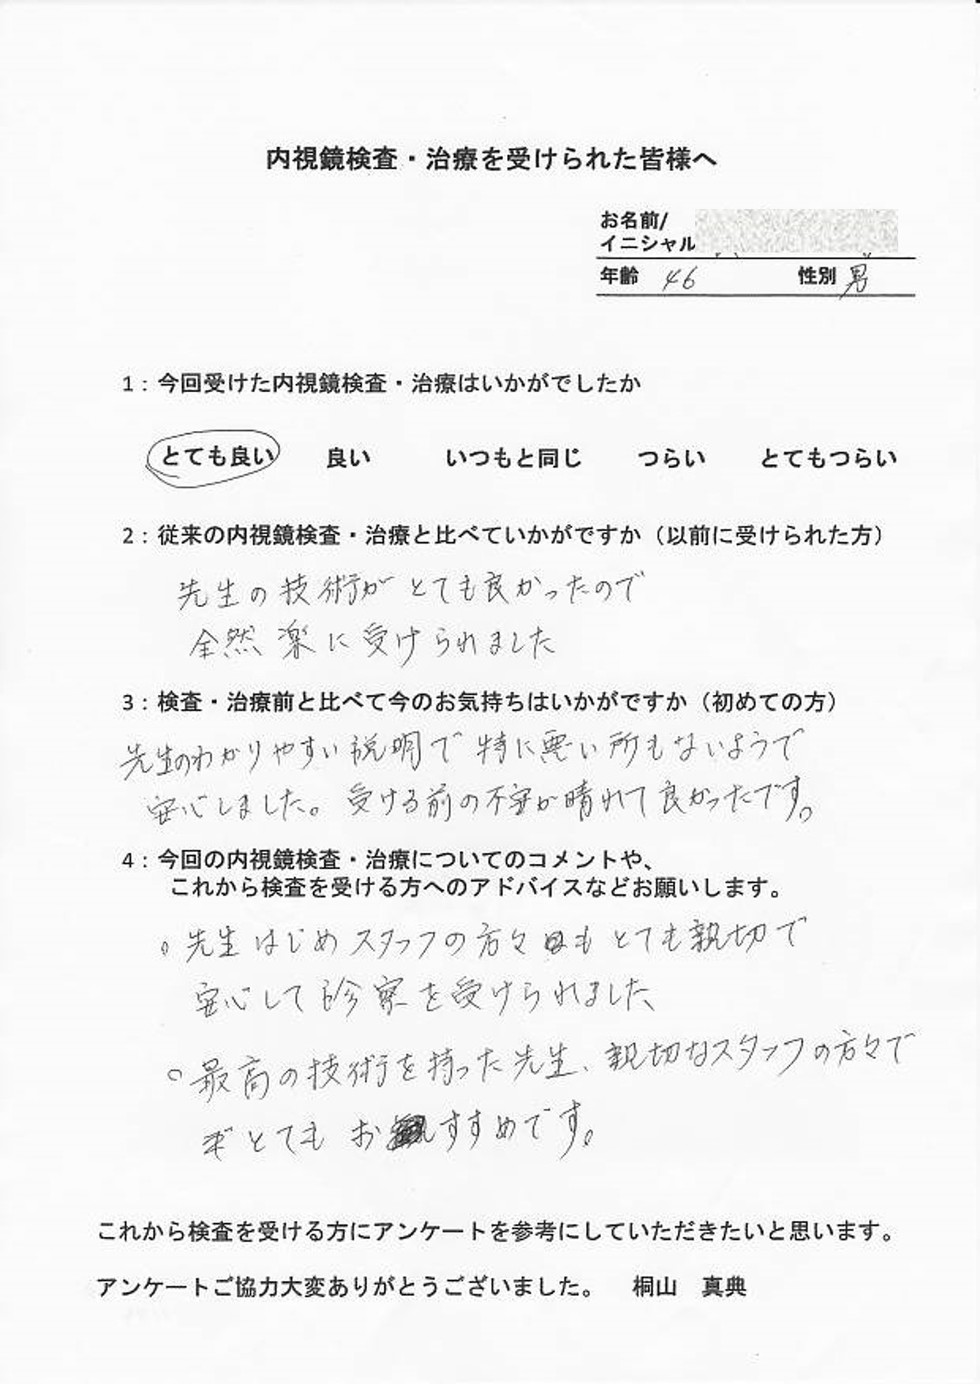 内視鏡検査・治療を受けられた皆様へ
お名前/
イニシャル
年齢 46 性別 男
1：今回受けた内視鏡検査・治療はいかがでしたか
とても良い 良い いつもと同じ つらい とてもつらい
2：従来の内視鏡検査・治療と比べていかがですか（以前に受けられた方）
先生の技術がとても良かったので
全然楽に受けられました
3：検査・治療前と比べて今のお気持ちはいかがですか（初めての方）
先生のわかりやすい説明で特に悪い所もないようで
安心しました。受ける前の不安が晴れて良かったです。
4：今回の内視鏡検査・治療についてのコメントや、
これから検査を受ける方へのアドバイスなどお願いします。
○先生はじめスタッフの方々もとても親切で
安心して診察を受けられました
○最高の技術を持った先生、親切なスタッフの方々で
とてもおすすめです。
これから検査を受ける方にアンケートを参考にしていただきたいと思います。
アンケートご協力大変ありがとうございました。 桐山 真典